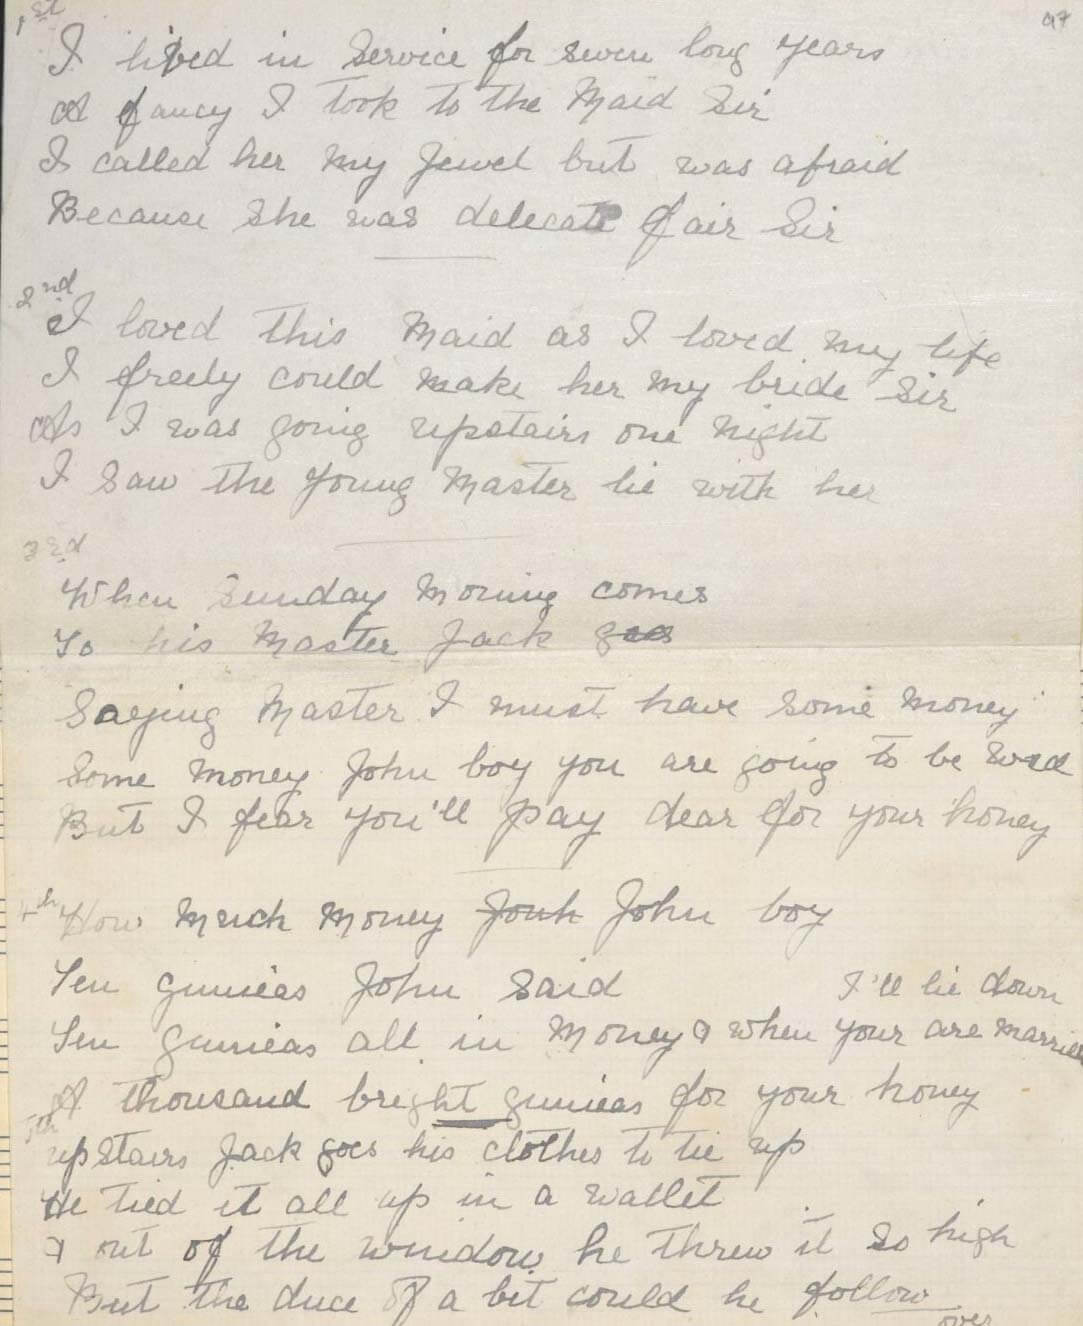 97
1st
I lived in Service for seven long years
A fancy I took to the Maid Sir
I called her my Jewel but was afraid
Because She was delecate fair Sir
2nd
I loved this Maid as I loved my life
I freely could make her my bride Sir
As I was going upstairs one Night
I Saw the Young Master lie with her
3rd
When Sunday Moring comes
To his Master Jack goes
Saying Master I must have Some Money
Some Money John boy you are going to be wed
But I fear you'll pay dear for your honey
4th How Much Money Jonh John boy
Ten gunieas John Said
I'll lie down
Ten gunieas all in Money & when your are married
A thousand bright gunieas for your honey
5th
upStairs Jack goes his clothes to tie up
He tied it all up in a wallet
& out of the window he threw it So high
But the duce of a bit could he follow
over